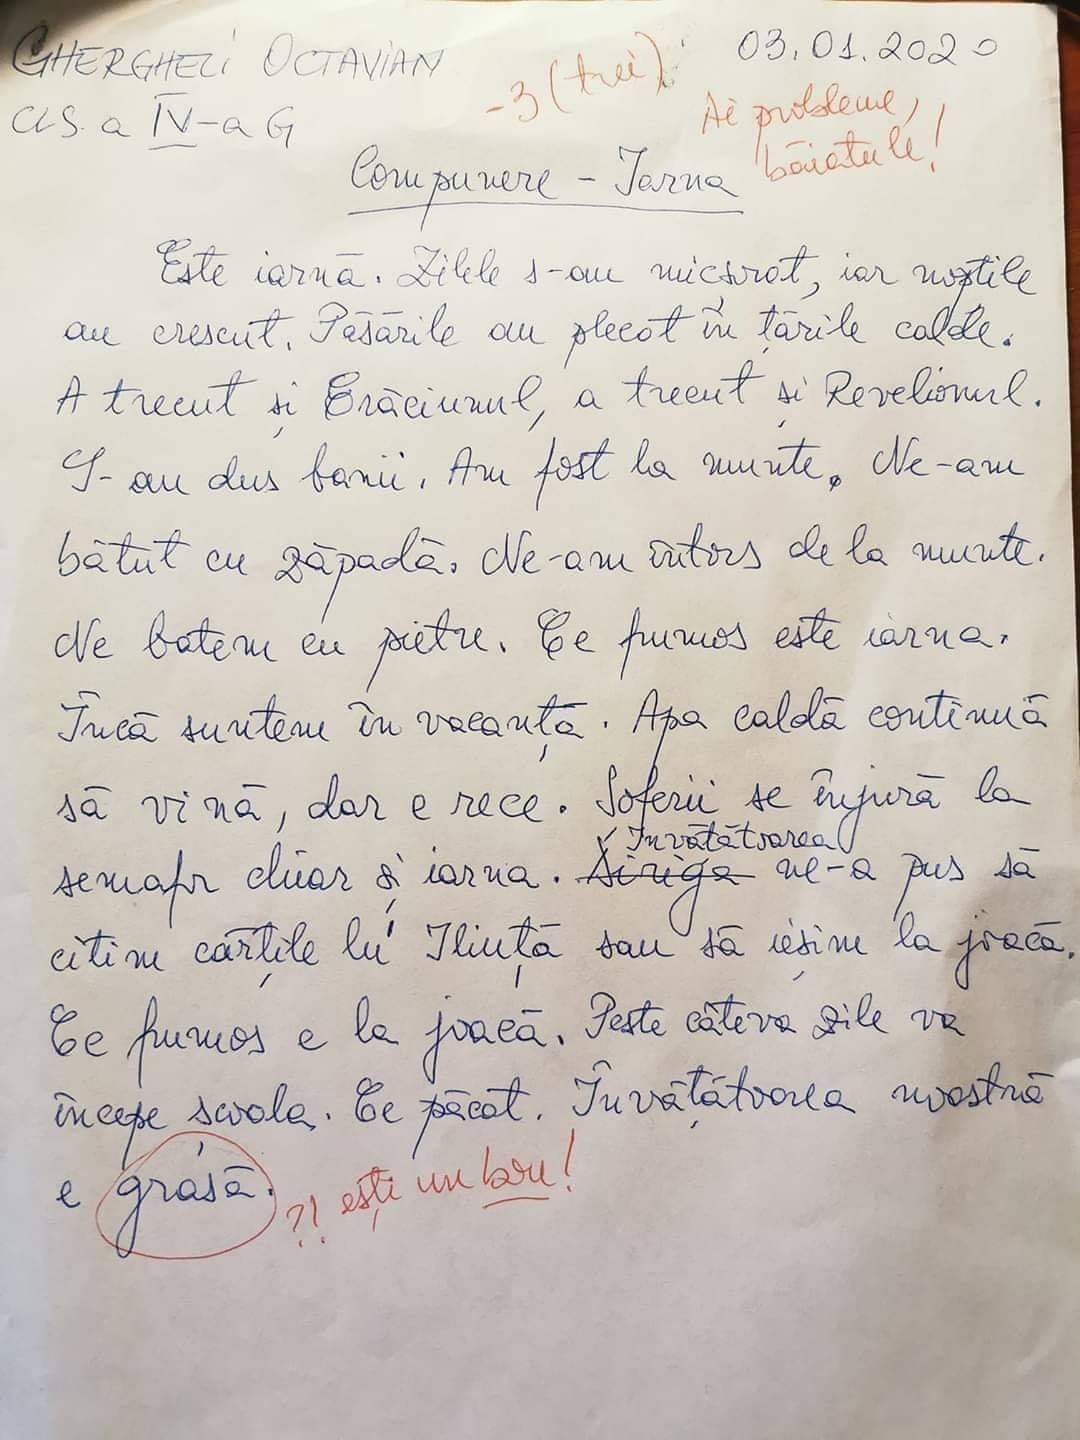 GHERGHELI OCTAVIAN
03.01.2020
-3 (trei)
CLS. a IV-a G
Ai probleme,
băiatule!
Compunere - Iarna
Este iarnă. Zilele s-au micșorat, iar nopțile
au crescut. Păsările au plecat în țările calde.
A trecut și Crăciunul, a trecut și Revelionul.
S-au dus banii. Am fost la munte. Ne-am
bătut cu zăpadă. Ne-am întors de la munte.
Ne batem cu pietre. Ce frumos este iarna.
Încă suntem în vacanță. Apa caldă continuă
să vină, dar e rece. Șoferii se înjură la
Învățătoarea
semafor chiar și iarna. Siriga ne-a pus să
citim cărțile lu' Iliuță sau să ieșim la joacă.
Ce frumos e la joacă. Peste câteva zile va
începe școala. Ce păcat. Învățătoarea noastră
e grasă.
?! ești un bou!